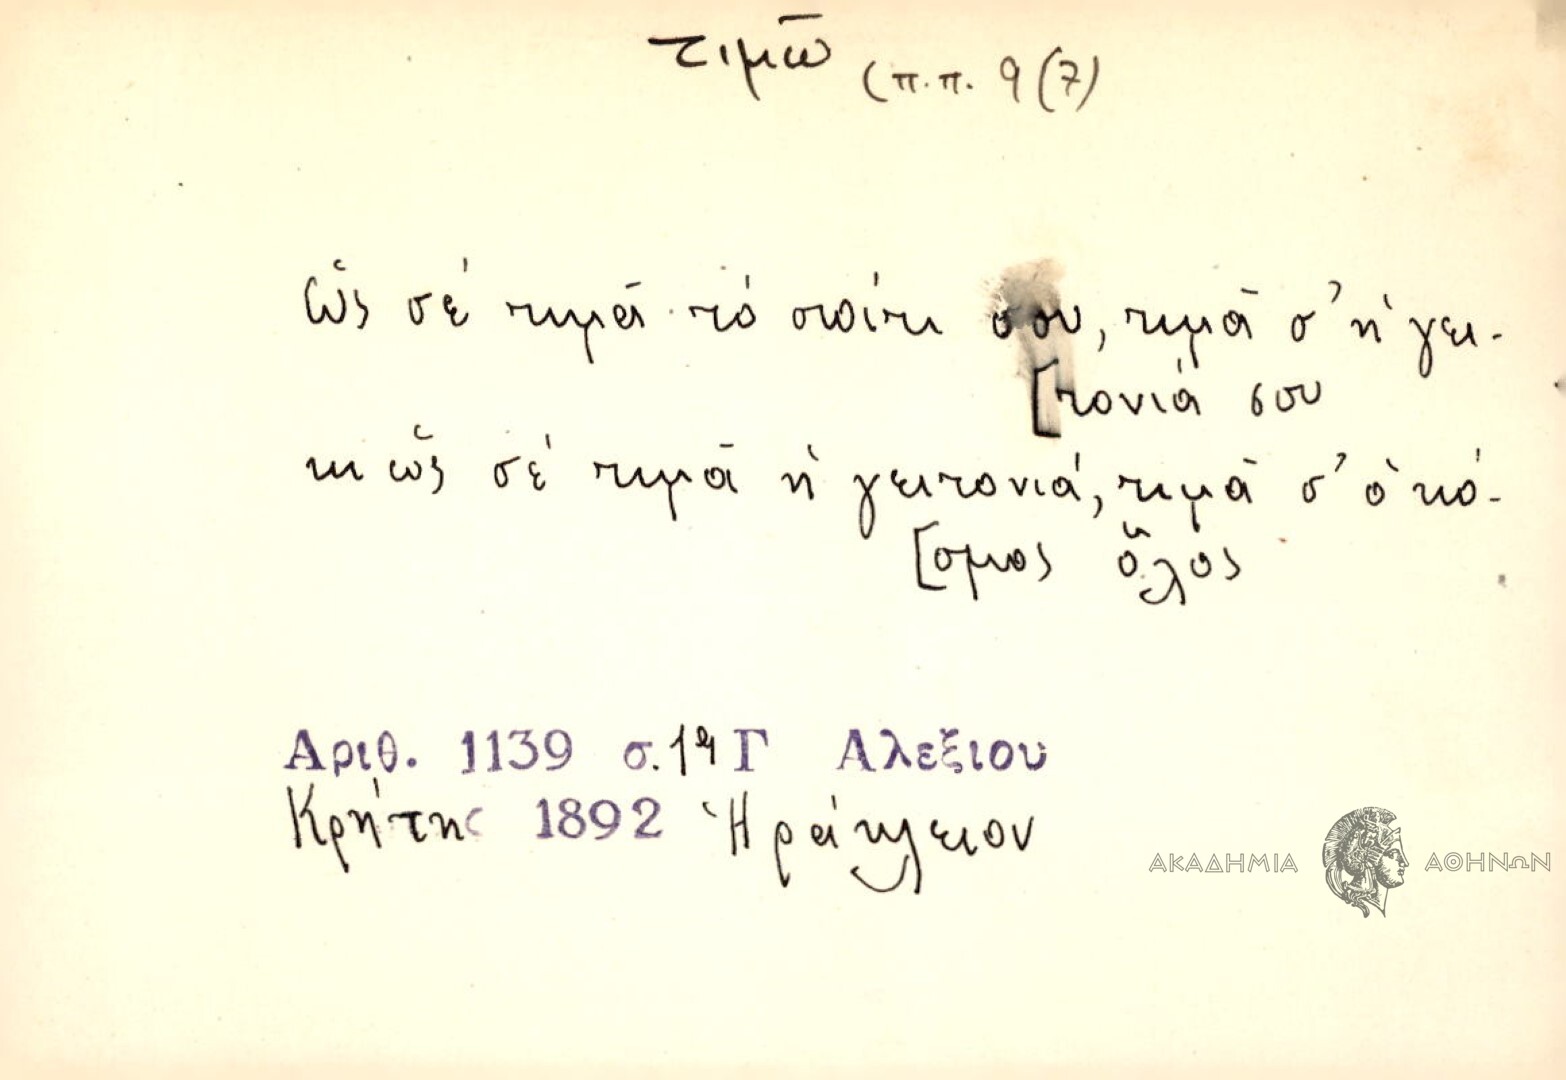 τιμῶ (π.π. 9(7)
Ὥς σέ τιμᾶ τό σπίτι σου, τιμᾶ σ' ἡ γει-
[τονιά σου
κι ὥς σέ τιμᾶ ἡ γειτονιά, τιμᾶ σ' ὁ κό-
[σμος ὅλος
Αριθ. 1139 σ. Γ Αλεξιου
Κρήτης 1892 Ἡράκλειον
ΑΚΑΔΗΜΙΑ ΑΘΗΝΩΝ